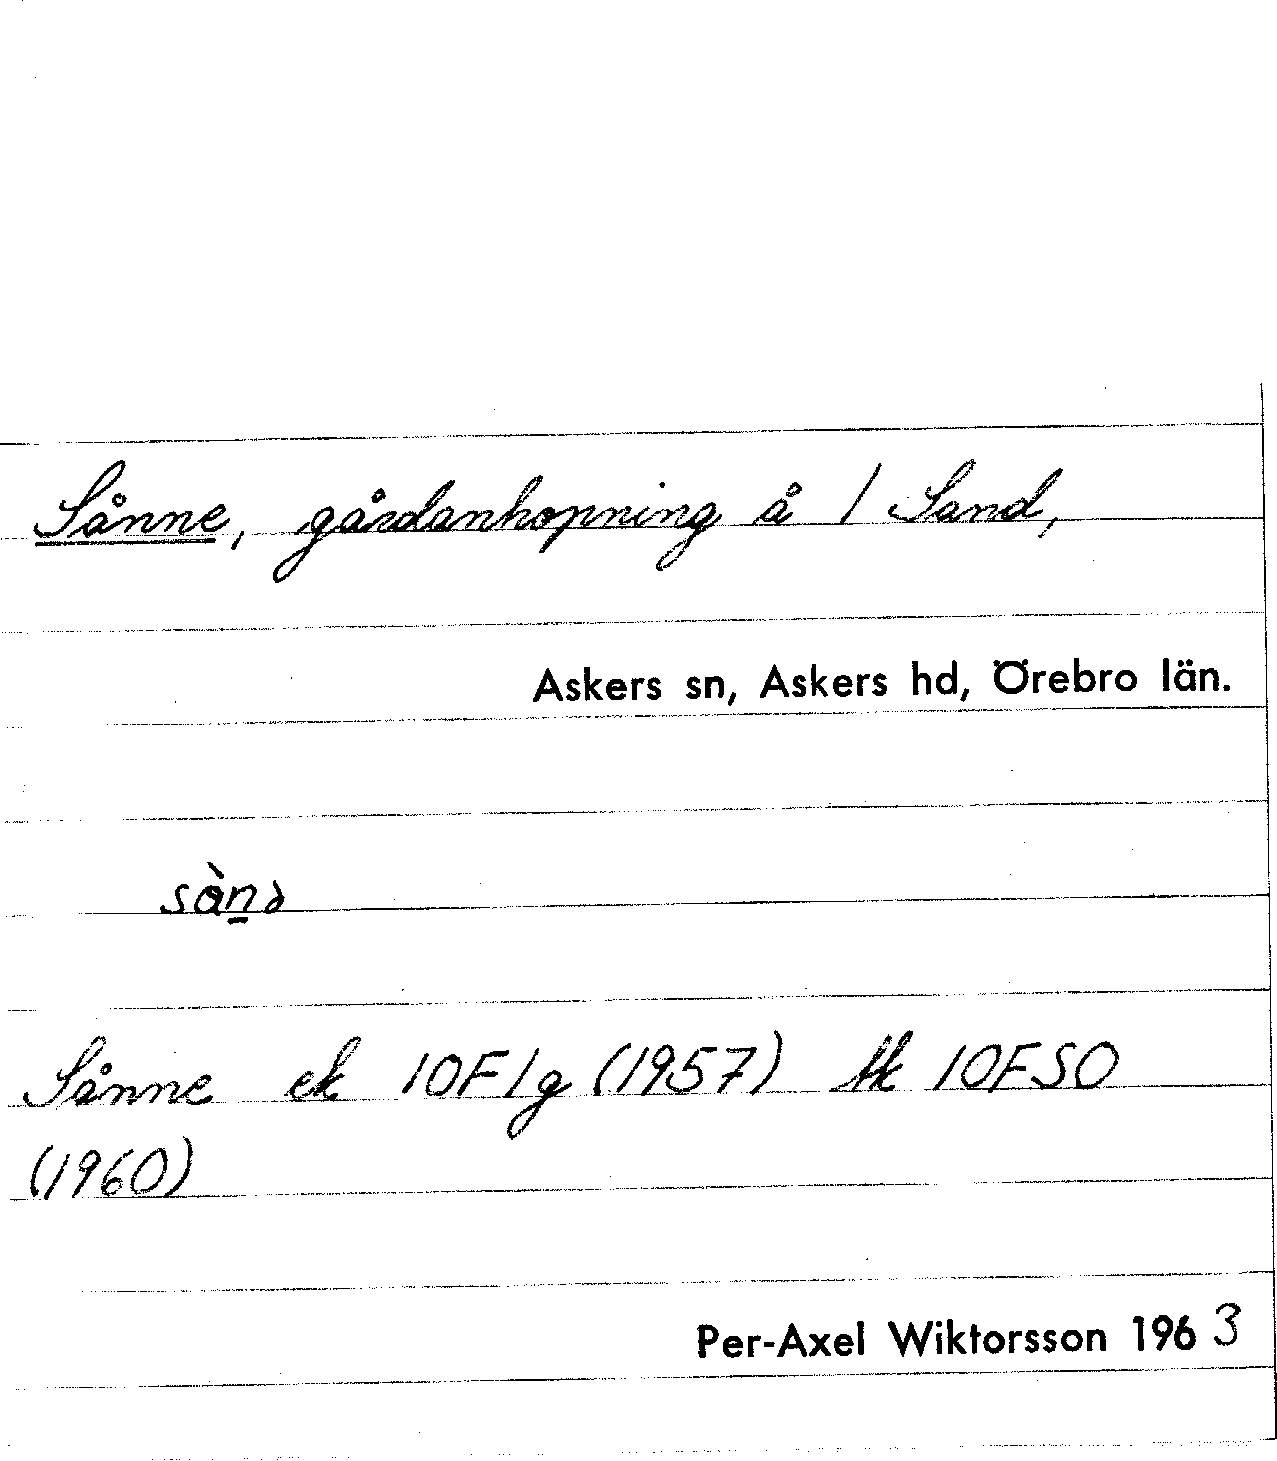 Sånne, gårdanhopning å 1 Sand,
Askers sn, Askers hd, Örebro län.
sànə
Sånne ek 10F1g (1957) tk 10FSO
(1960)
Per-Axel Wiktorsson 1963